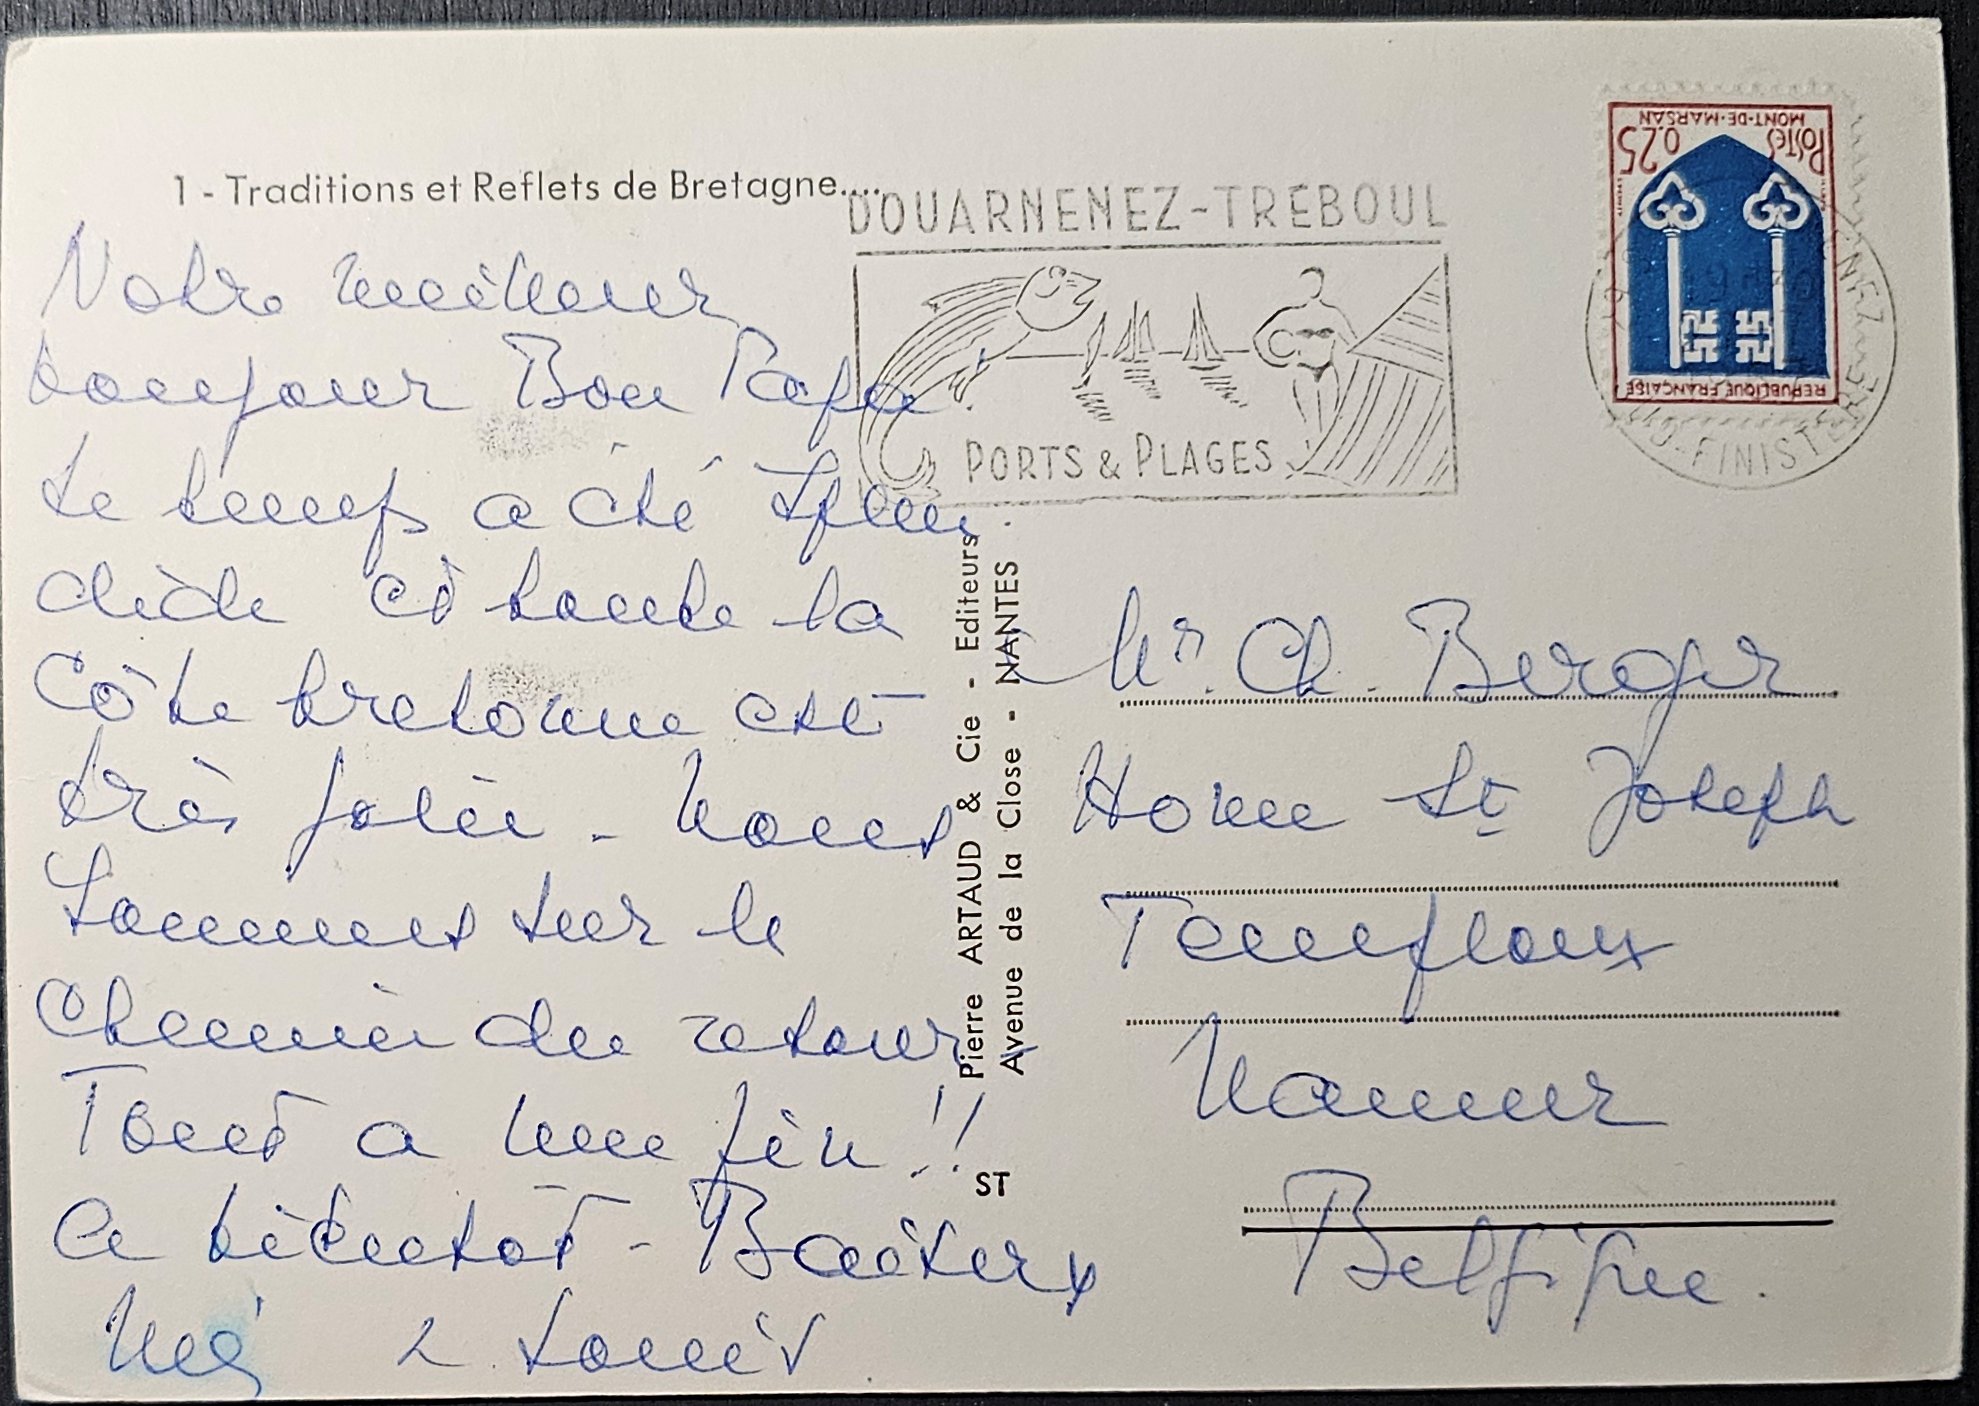 1 - Traditions et Reflets de Bretagne....
DOUARNENEZ-TREBOUL
PORTS & PLAGES
MONT-DE-MARSAN
POSTES 0.25
REPUBLIQUE FRANÇAISE
NENEZ
FINISTERE
Notre meilleur
bonjour Bon Papa.
Le temps a été splen
dide et toute la
côte bretonne est
très jolie - Nous
sommes sur le
chemin du retour -
Tout a une fin !!
A bientôt - Baisers
2 Louis
Pierre ARTAUD & Cie - Editeurs
Avenue de la Close - NANTES
ST
Mr. Ch. Berger
Home St Joseph
Temploux
Namur
Belgique.